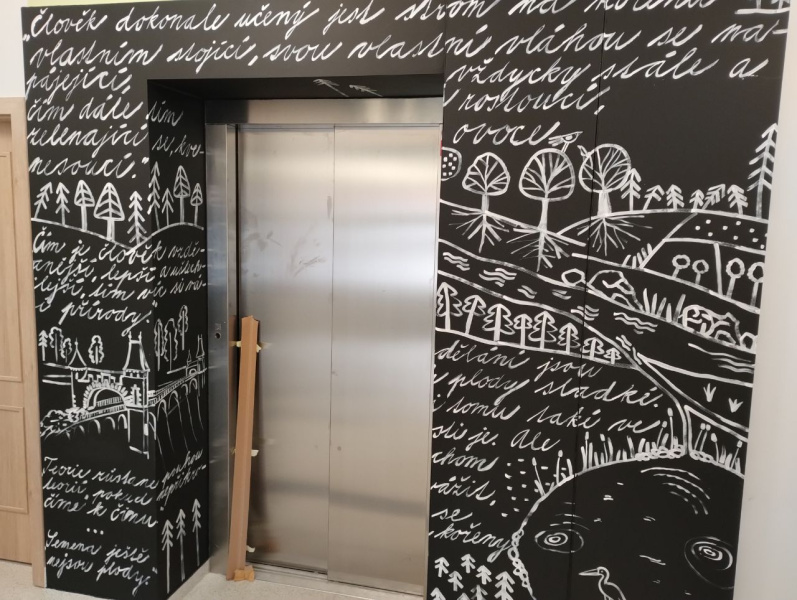 „Člověk dokonale učený jest strom na kořenu
vlastním stojící, svou vlastní vláhou se na-
pájející,
vždycky stále a
čím dále tím
rostoucí,
zelenající se, kve-
ovoce
nesoucí."
Čím je člověk vzdě-
lanější, lepší a ušlech-
tilejší, tím víc si má-
přírody.
dělání jsou
plody sladké.
tomu také ve
je. Ale
chom
vážit
se
kořeny
Teorie zůstane pouhou
teorií, pokud nepřikro-
číme k činu
...
Semena ještě
nejsou plody."